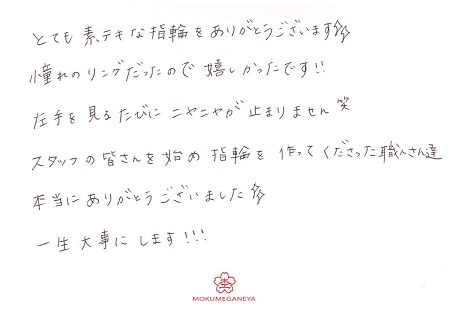 とても素テキな指輪をありがとうございます
憧れのリングだったので嬉しかったです!!
左手を見るたびにニヤニヤが止まりません笑
スタッフの皆さんを始め指輪を作ってくださった職人さん達
本当にありがとうございました
一生大事にします!!!
MOKUMEGANEYA